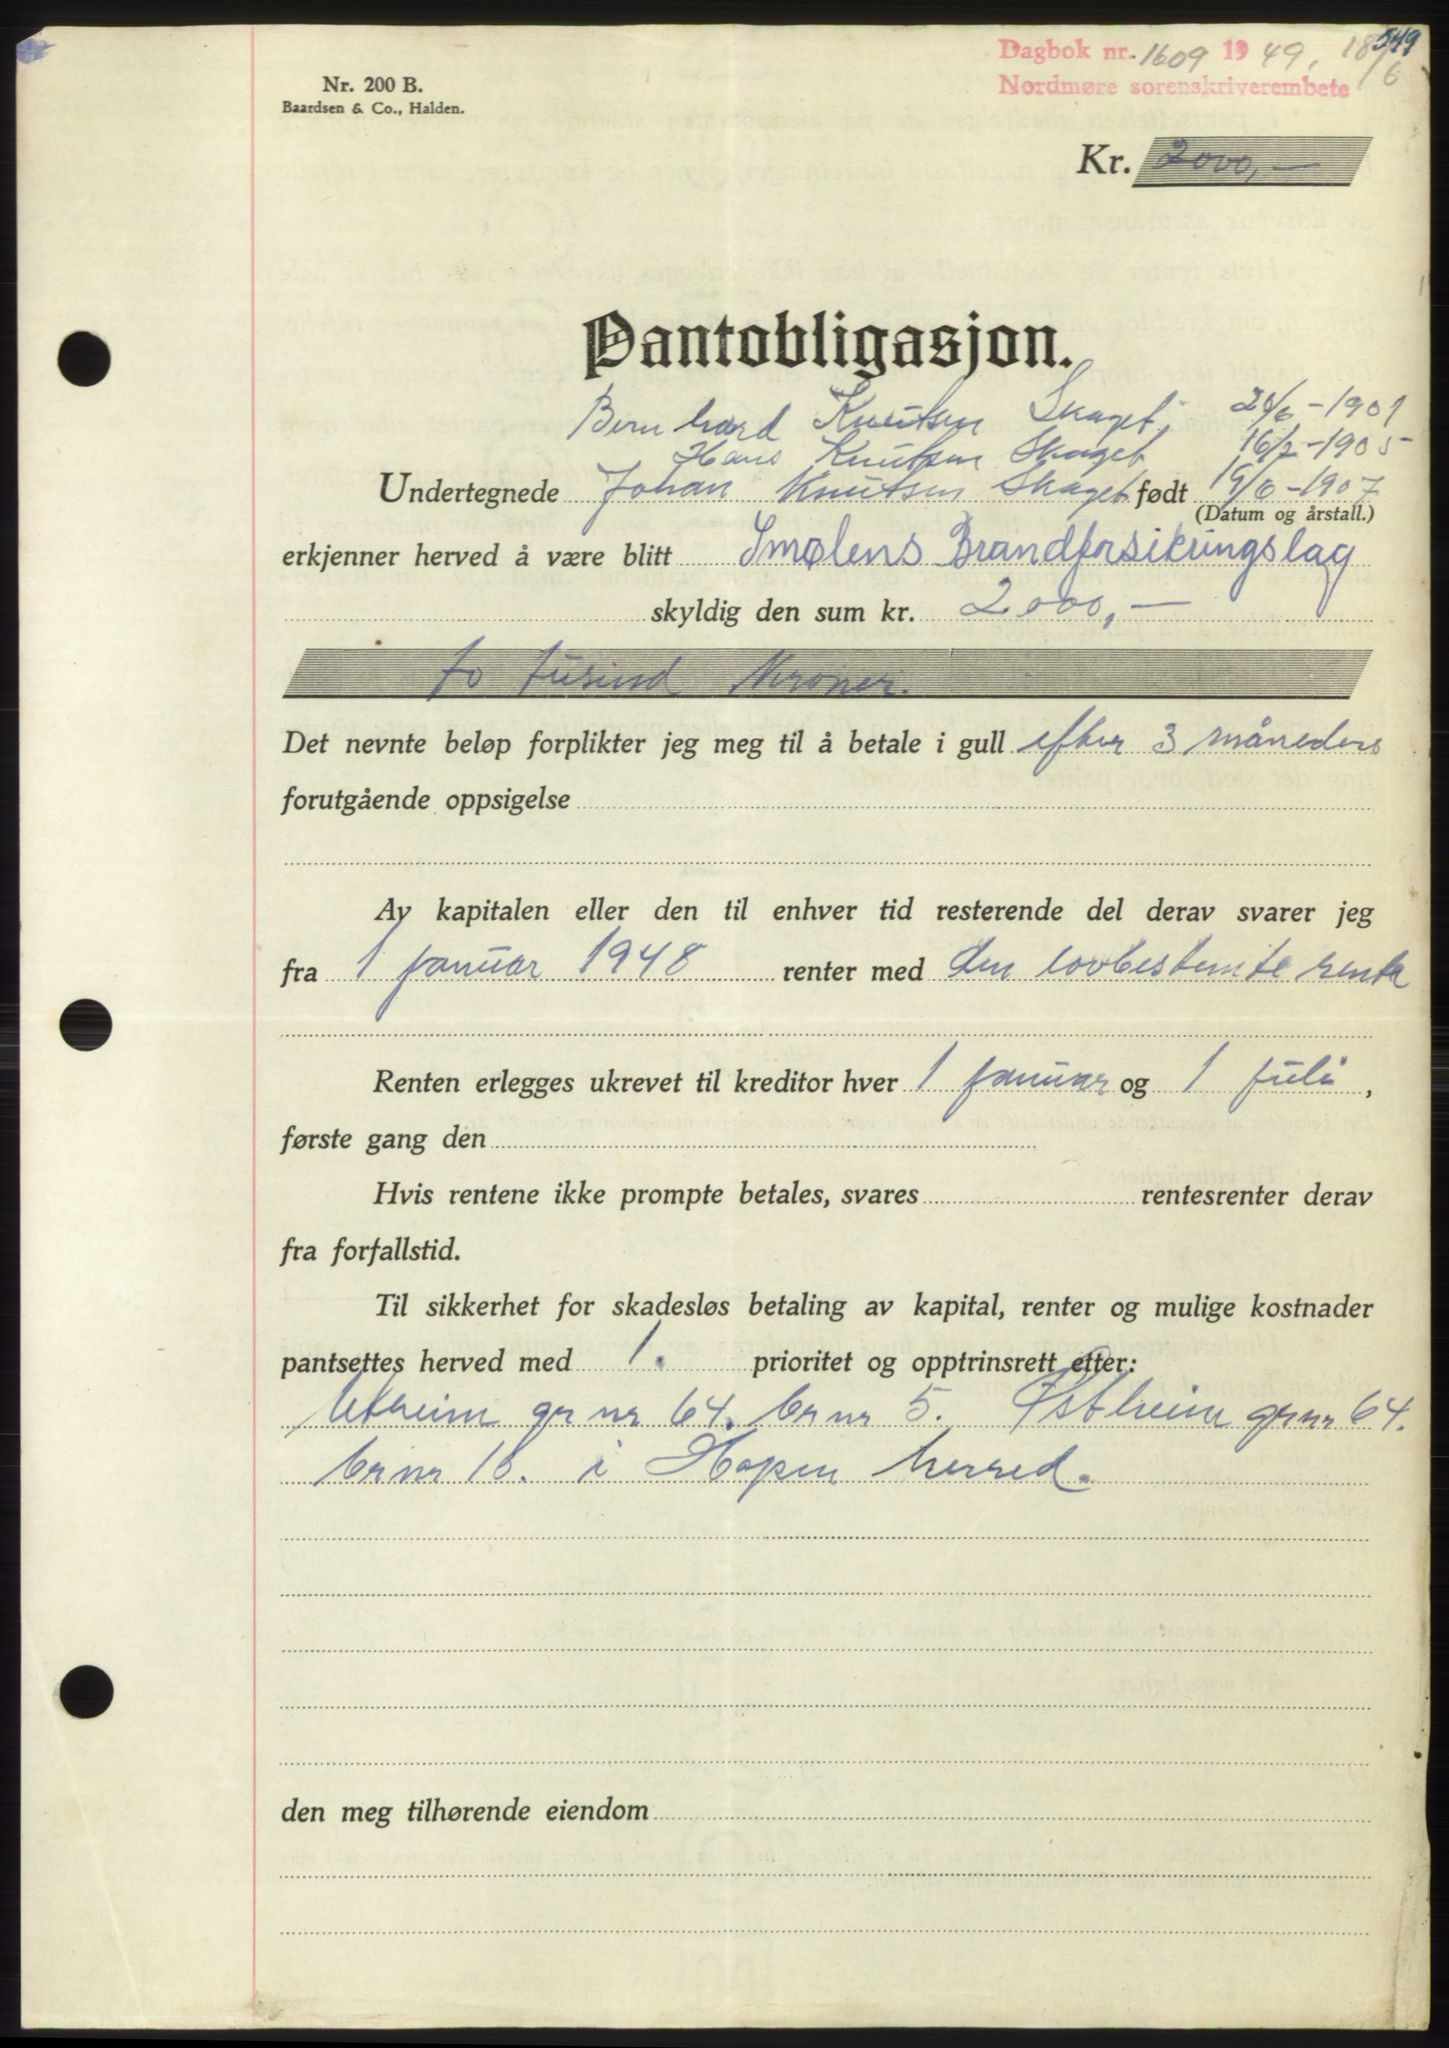 549
Dagbok nr. 1609 1949, 18/6
Nordmøre sorenskriverembete
Nr. 200 B.
Baardsen & Co., Halden.
Kr. 2000,—
Pantobligasjon.
Bernhard Knutsen Skaget, 20/6-1901
Hans Knutsen Skaget 16/2-1905
Undertegnede Johan Knutsen Skaget født 19/6-1907
(Datum og årstall.)
erkjenner herved å være blitt Smølens Brandforsikringslag
skyldig den sum kr. 2000,—
to tusind Kroner.
Det nevnte beløp forplikter jeg meg til å betale i gull efter 3 måneders
forutgående oppsigelse
Av kapitalen eller den til enhver tid resterende del derav svarer jeg
fra 1 januar 1948 renter med den lovbestemte rente
Renten erlegges ukrevet til kreditor hver 1 januar og 1 juli,
første gang den
Hvis rentene ikke prompte betales, svares rentesrenter derav
fra forfallstid.
Til sikkerhet for skadesløs betaling av kapital, renter og mulige kostnader
pantsettes herved med 1. prioritet og opptrinsrett etter:
Utheim gr nr 64. br nr 5. Østheim gr nr 64.
br nr 16. i Hopen herred.
den meg tilhørende eiendom